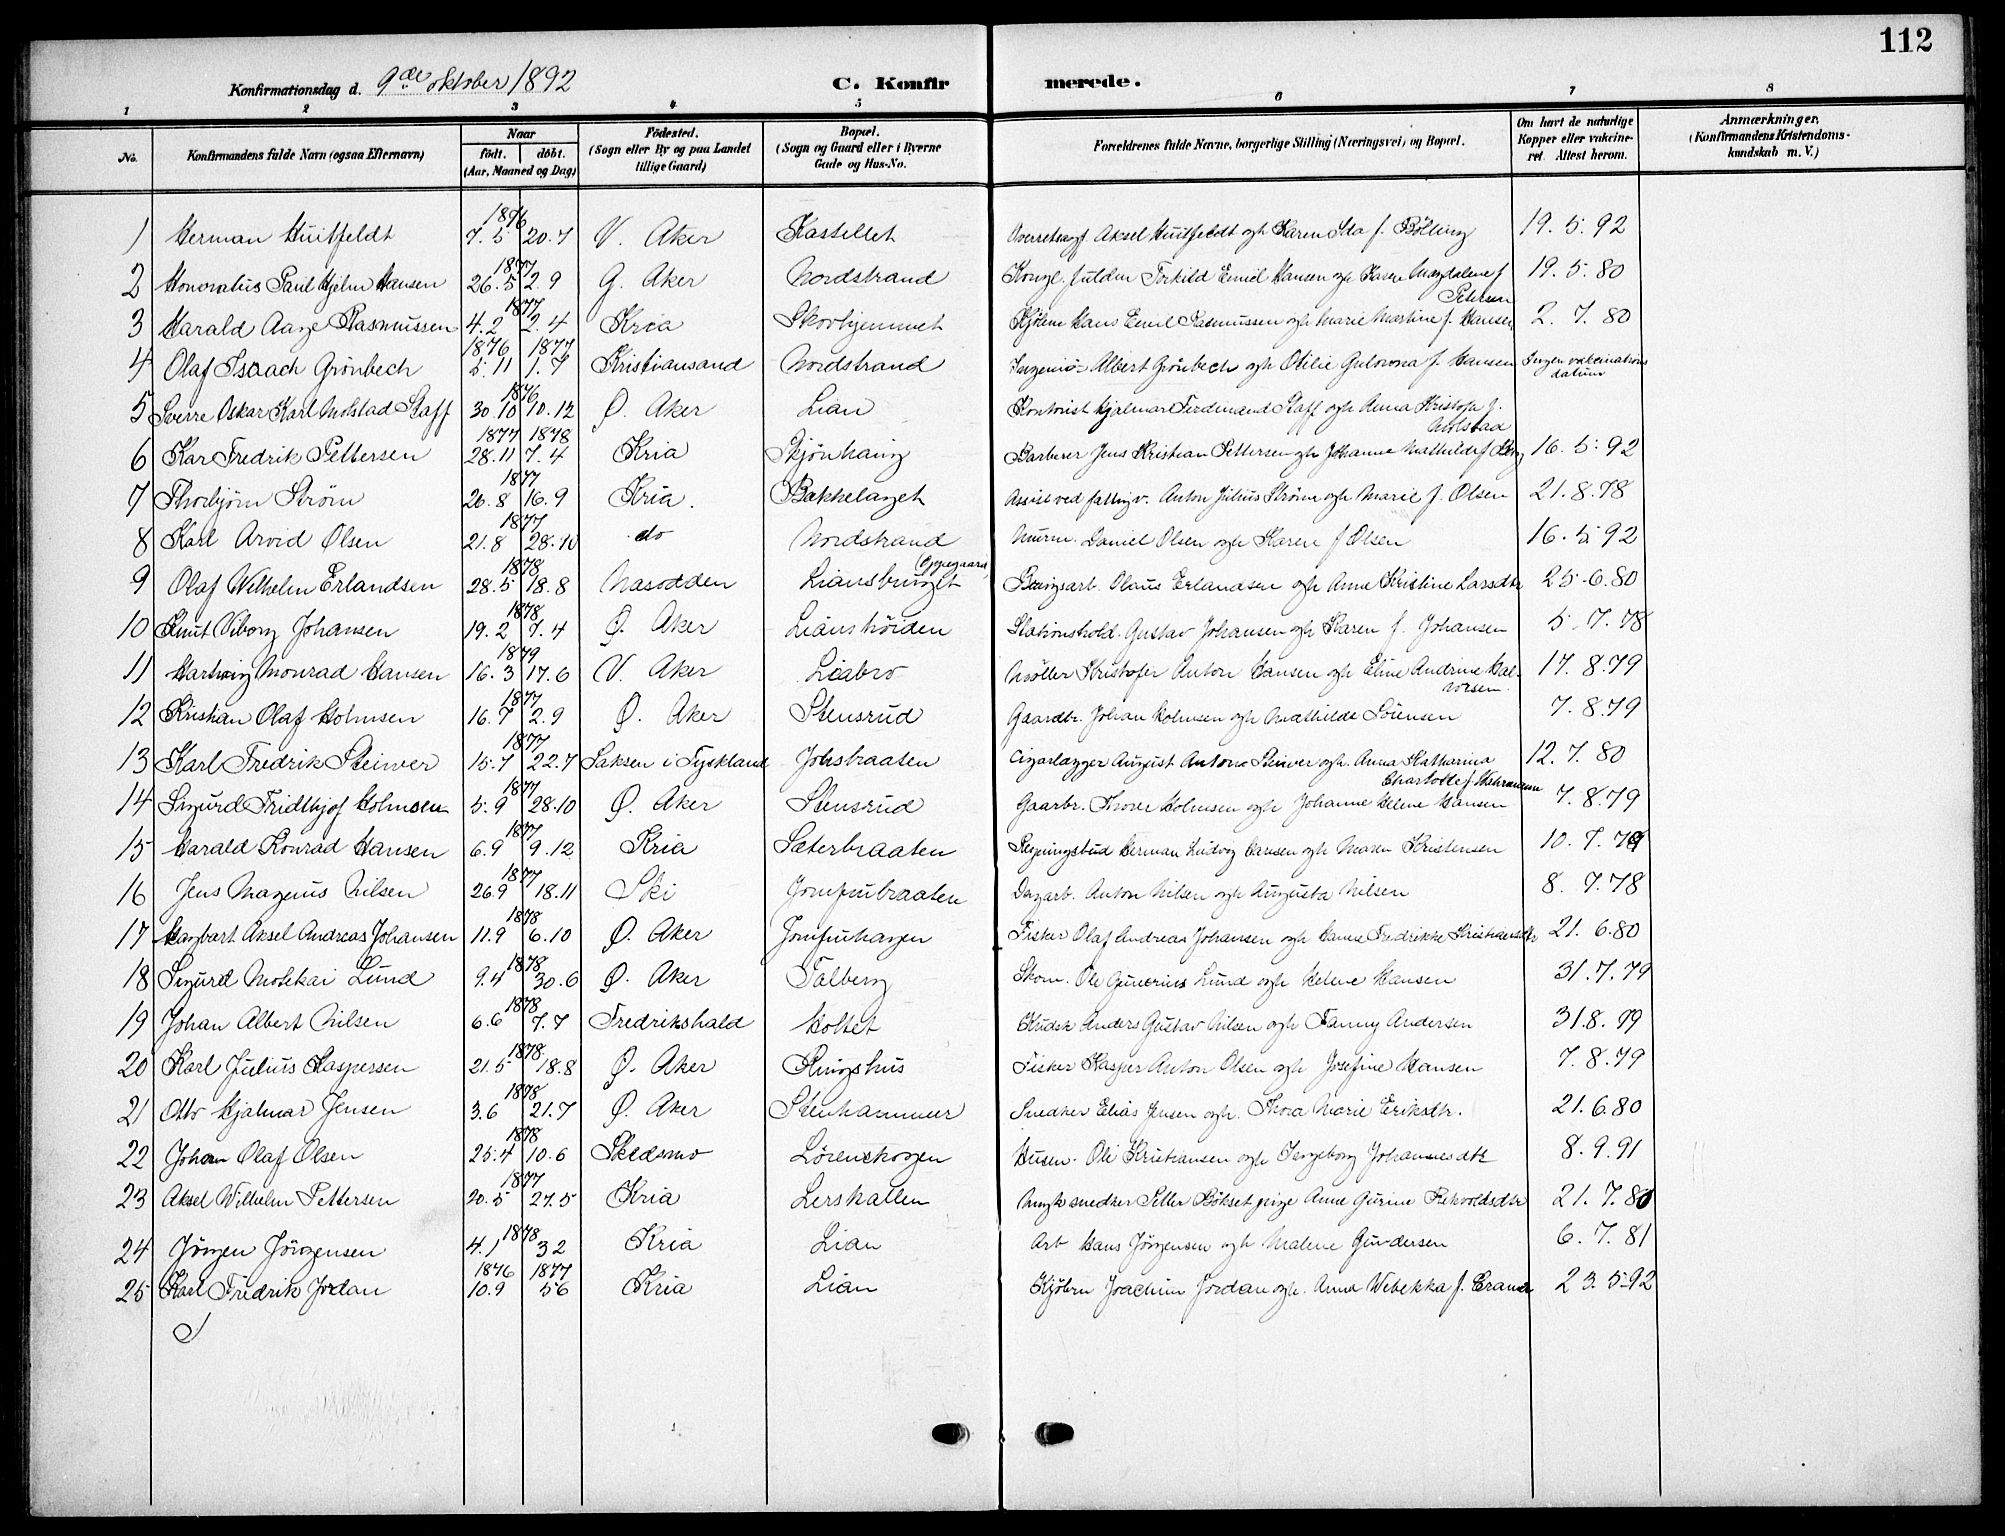 112
Konfirmationsdag d. 9de oktober 1892
C. Konfirmerede.
1 2 3 4 5 6 7 8
No. | Konfirmandens fulde Navn (ogsaa Efternavn) | Naar født. døbt. (Aar, Maaned og Dag) | Fødested. (Sogn eller By og paa Landet tillige Gaard) | Bopæl. (Sogn og Gaard eller i Byerne Gade og Hus-No. | Forældrenes fulde Navne, borgerlige Stilling (Næringsvei) og Bopæl. | Om havt de naturlige Kopper eller vakcineret. Attest herom. | Anmærkninger, (Konfirmandens Kristendomskundskab m. V.)
1 Herman Huitfeldt 1876 7.5 20.7 V. Aker Kastellet Overretssagf. Aksel Huitfeldt og h Karen Ida f. Bølling 19.5.92
2 Honoratus Paul Hjelm Hansen 1877 26.5 2.9 G. Aker Nordstrand Kongl. fuldm Torkild Emil Hansen og h Magdalene f Petersen 19.5.80
3 Harald Aage Rasmussen 1877 4.2 2.4 Kria Skovhjemmet Kjøbm Hans Emil Rasmussen og h Marie Martine f. Hansen 2.7.80
4 Olaf Isaach Grønbech 1876 1877 5.11 1.7 Kristiansand Nordstrand Ingeniør Albert Grønbech og h Otilie f. Hansen Ingen vakcinations datum
5 Sverre Oskar Karl Molstad Staff 1876 30.10 10.12 Ø. Aker Lian Kontorist Hjalmar Ferdinand Staff og h Anna Kristofa f. Molstad
6 Kar Fredrik Pettersen 1877 1878 28.11 7.4 Kria Bjønhaug Barberer Jens Kristian Pettersen og h Johanne Mathilde f 16.5.92
7 Thorbjørn Strøm 1877 20.8 16.9 Kria. Bekkelaget Assist ved fattigv. Anton Julius Strøm og h Marie f. Olsen 21.8.78
8 Karl Arvid Olsen 1877 21.8 28.10 do Nordstrand Murm. Daniel Olsen og h Karen f Olsen 16.5.92
9 Olaf Wilhelm Erlandsen 1878 28.5 18.8 Nasodden Liansbruget (Oppegaard) Olaus Erlandsen og h Anne Kristine Larsdtr 25.6.80
10 Knut Viborg Johansen 1878 19.2 7.4 Ø. Aker Lianshöiden Stationshold. Gustav Johansen og h Karen f. Johansen 5.7.78
11 Hartvig Monrad Hansen 1879 16.3 17.6 V. Aker Liabro Møller Kristofer Anton Hansen og h Eline Andrine Halvorsen 17.8.79
12 Kristian Olaf Holmsen 1877 16.7 2.9 Ø. Aker Stensrud Gaardbr. Johan Holmsen og h Mathilde Sörensen 7.8.79
13 Karl Fredrik Steiwer 1877 15.7 22.7 Saksen i Tyskland Johsbraaten Cigarlagger August Anton Steiwer og h. Anna Katharina Charlotte f. 12.7.80
14 Sigurd Fridthjof Holmsen 1877 5.9 28.10 Ø. Aker Stensrud Gaarbr. Thorer Holmsen og h Johanne Helene Hansen 7.8.79
15 Harald Konrad Hansen 1877 6.9 9.12 Kria Sæterbraaten Herman Ludvig Hansen og h Maren Kristensen 10.7.79
16 Jens Magnus Nilsen 1877 26.9 18.11 Ski Jomfrubraaten Dagarb. Anton Nilsen og h Augusta Nilsen 8.7.78
17 Hagbart Aksel Andreas Johansen 1878 11.9 6.10 Ø. Aker Jomfruhagen Fisker Olaf Andreas Johansen og h Hanna Fredrikke Kristiansdtr 21.6.80
18 Sigurd Lund 1878 9.4 30.6 Ø. Aker Talberg Skom. Ole Gunerius Lund og h Helene Hansen 31.7.79
19 Johan Albert Nilsen 1878 6.6 7.7 Fredrikshald Holtet Kudsk Anders Gustav Nilsen og h Fanny Andersen 31.8.79
20 Karl Julius Kaspersen 1878 21.5 18.8 Ø. Aker Ringshus Fisker Kasper Anton Olsen og h Josefine Hansen 7.8.79
21 Otto Hjalmar Jensen 1878 3.6 21.7 Ø. Aker Stenhammer Snedker Elias Jensen og h. Thora Marie Eriksdtr. 21.6.80
22 Johan Olaf Olsen 1878 25.4 10.6 Skedsmo Lørenskogen Husm. Ole Kristiansen og h Ingeborg Johannesdtr 8.9.91
23 Aksel Wilhelm Pettersen 1877 20.5 27.5 Kria Lerskallen snedker Petter pige Anne Gurine 21.7.80
24 Jörgen Jörgensen 1878 4.1 3 2 Kria Lian Arb Hans Jörgensen og h Malene Gundersen 6.7.81
25 Karl Fredrik Jordan 1876 1877 10.9 5 6 Kria Lian Kjøbm Joachim Jordan og h. Anna Webekka f. Cramer 23.5.92